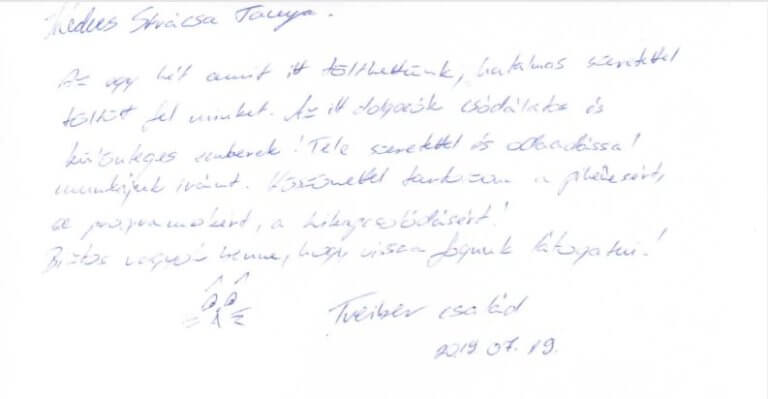 Kedves Strázsa Tanya.
Az egy hét amit itt tölthettünk, hatalmas szeretettel
töltött fel minket. Az itt dolgozók csodálatos és
különleges emberek! Tele szeretettel és odaadással
munkájuk iránt. Köszönettel tartozom a pihenésért,
a programokért, a kikapcsolódásért!
Biztos vagyok benne, hogy vissza fogunk látogatni!
Treiber család
2019 07. 19.